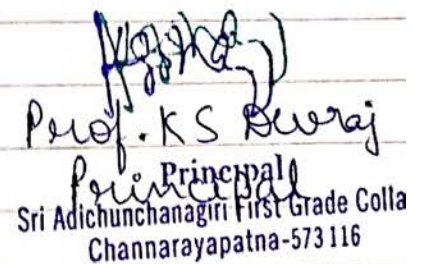 Prof. K S Devraj
Principal
Principal
Sri Adichunchanagiri First Grade Colla
Channarayapatna-573 116